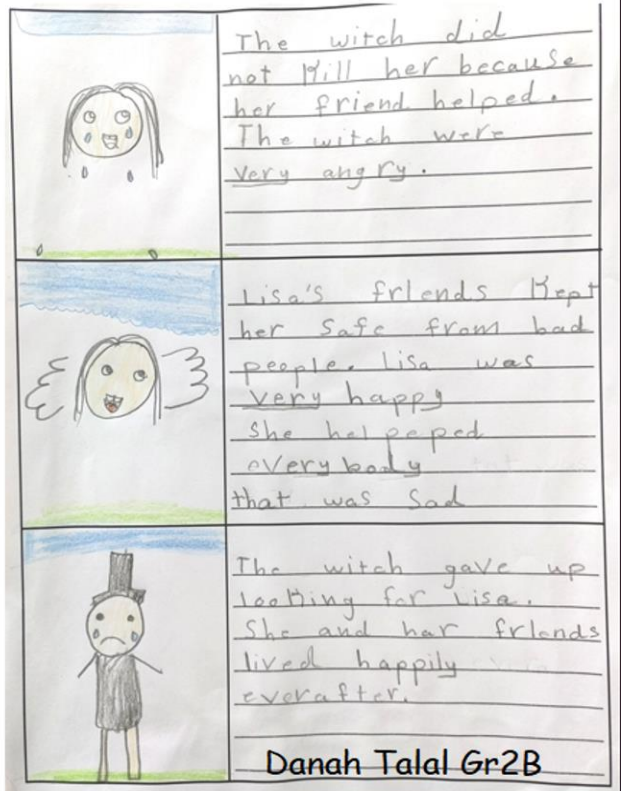 The witch did
not Kill her because
her friend helped.
The witch were
very angry.
Lisa's friends Kept
her safe from bad
people. Lisa was
very happy
She helpeped
everybody
that was sad
The witch gave up
looking for Lisa.
She and har friends
lived happily
everafter.
Danah Talal Gr2B